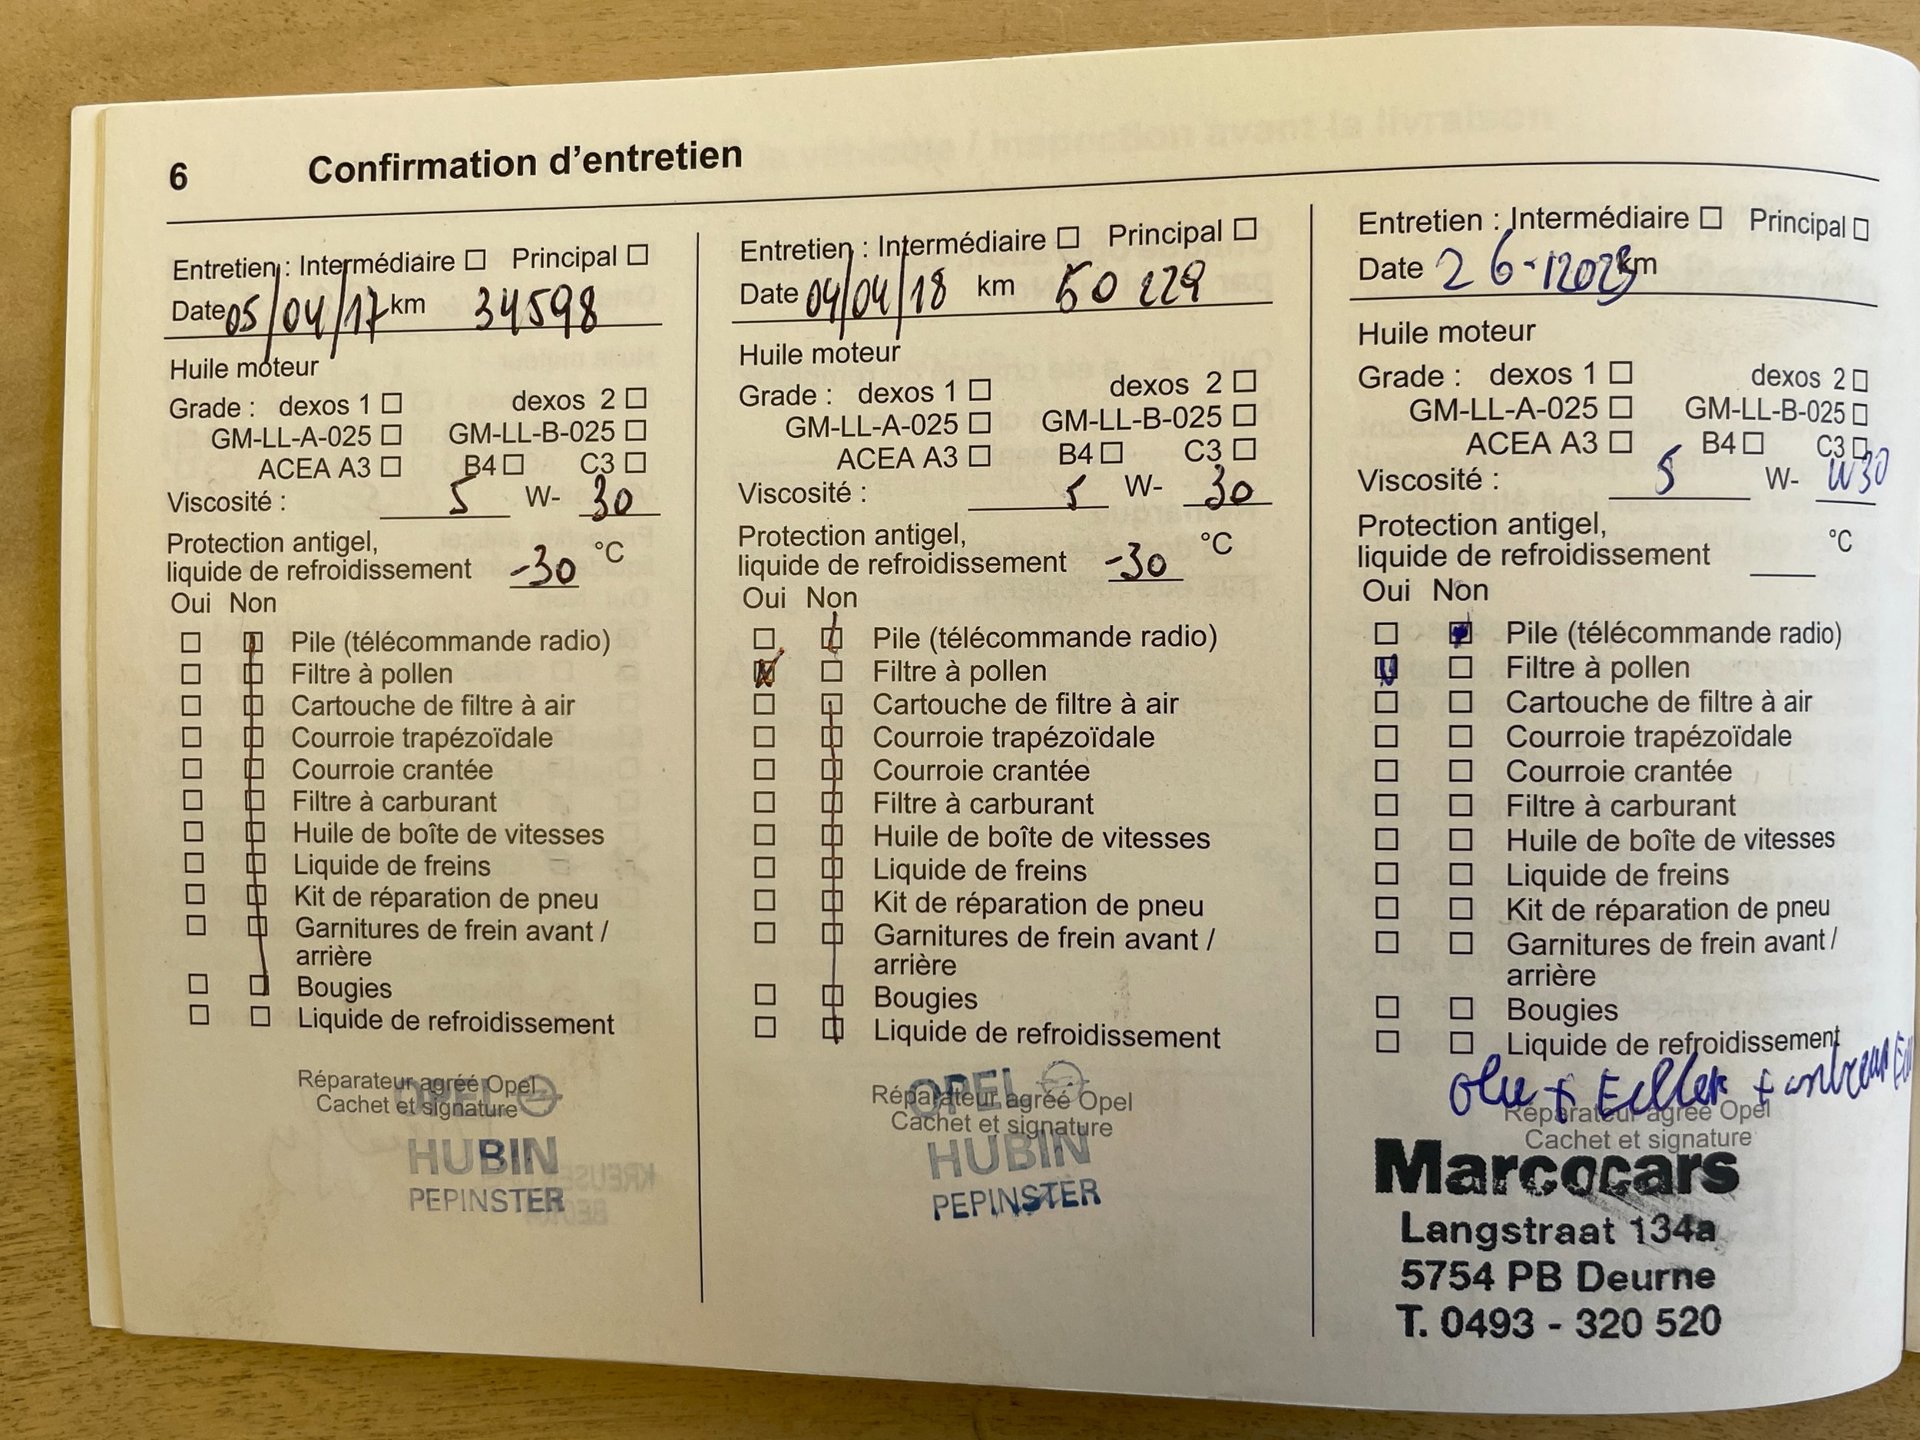 6 Confirmation d'entretien
Entretien : Intermédiaire ☐ Principal ☐
Date 05/04/17 km 34598
Huile moteur
Grade : dexos 1 ☐ dexos 2 ☐
GM-LL-A-025 ☐ GM-LL-B-025 ☐
ACEA A3 ☐ B4 ☐ C3 ☐
Viscosité : 5 W- 30
Protection antigel,
liquide de refroidissement -30 °C
Oui Non
Pile (télécommande radio)
Filtre à pollen
Cartouche de filtre à air
Courroie trapézoïdale
Courroie crantée
Filtre à carburant
Huile de boîte de vitesses
Liquide de freins
Kit de réparation de pneu
Garnitures de frein avant /
arrière
Bougies
Liquide de refroidissement
Réparateur agréé Opel
Cachet et signature
OPEL
HUBIN
PEPINSTER
Entretien : Intermédiaire ☐ Principal ☐
Date 04/04/18 km 50229
Huile moteur
Grade : dexos 1 ☐ dexos 2 ☐
GM-LL-A-025 ☐ GM-LL-B-025 ☐
ACEA A3 ☐ B4 ☐ C3 ☐
Viscosité : 5 W- 30
Protection antigel,
liquide de refroidissement -30 °C
Oui Non
Pile (télécommande radio)
Filtre à pollen
Cartouche de filtre à air
Courroie trapézoïdale
Courroie crantée
Filtre à carburant
Huile de boîte de vitesses
Liquide de freins
Kit de réparation de pneu
Garnitures de frein avant /
arrière
Bougies
Liquide de refroidissement
Réparateur agréé Opel
Cachet et signature
OPEL
HUBIN
PEPINSTER
Entretien : Intermédiaire ☐ Principal ☐
Date km
Huile moteur
Grade : dexos 1 ☐ dexos 2 ☐
GM-LL-A-025 ☐ GM-LL-B-025 ☐
ACEA A3 ☐ B4 ☐ C3 ☐
Viscosité : 5 W- W30
Protection antigel,
liquide de refroidissement °C
Oui Non
Pile (télécommande radio)
Filtre à pollen
Cartouche de filtre à air
Courroie trapézoïdale
Courroie crantée
Filtre à carburant
Huile de boîte de vitesses
Liquide de freins
Kit de réparation de pneu
Garnitures de frein avant /
arrière
Bougies
Liquide de refroidissement
Réparateur agréé Opel
Cachet et signature
Marcocars
Langstraat 134a
5754 PB Deurne
T. 0493 - 320 520